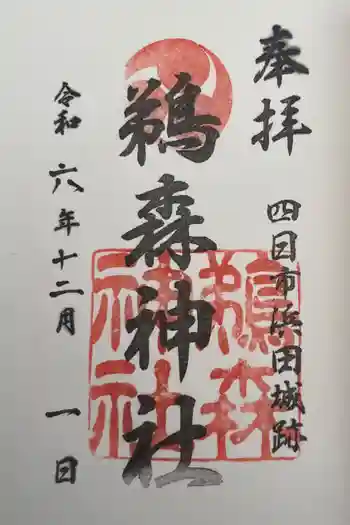 奉拝
四日市浜田城跡
鵜森神社
鵜森神社
令和六年十二月一日